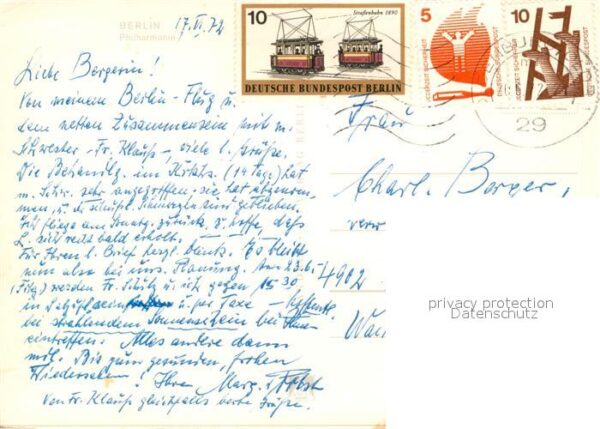 BERLIN
Philharmonie
17.VI.72
Liebe Bergerin!
Von meinem Berlin-Flug u.
dem netten Zusammensein mit m.
Schwester - Fr. Klauß, viele l. Grüße.
Die Behandlg. im Krkhs. (14 Tage) hat
m. Schw. sehr angegriffen, sie hat abgenom-
men, u. die Schmerzen sind geblieben.
Ich fliege am Sonntg. zurück u. hoffe, daß
L. sich recht bald erholt.
Für Ihren l. Brief herzl. Dank. Es bleibt
nun also bei uns. Planung. Am 23.6.
(Fitg) werden Fr. Schütz u. ich gegen 15 30
in u. per Taxe
bei strahlendem Sonnenschein bei Ihnen
eintreffen. Alles andere dann
mdl. Bis zum gesunden, frohen
Wiedersehen! Ihre Marg. Probst
Von Fr. Klauß gleichfalls beste Grüße.
10
Straßenbahn 1890
DEUTSCHE BUNDESPOST BERLIN
5
10
29
Frau
Charl. Berger,
verw
4902
privacy protection
Datenschutz